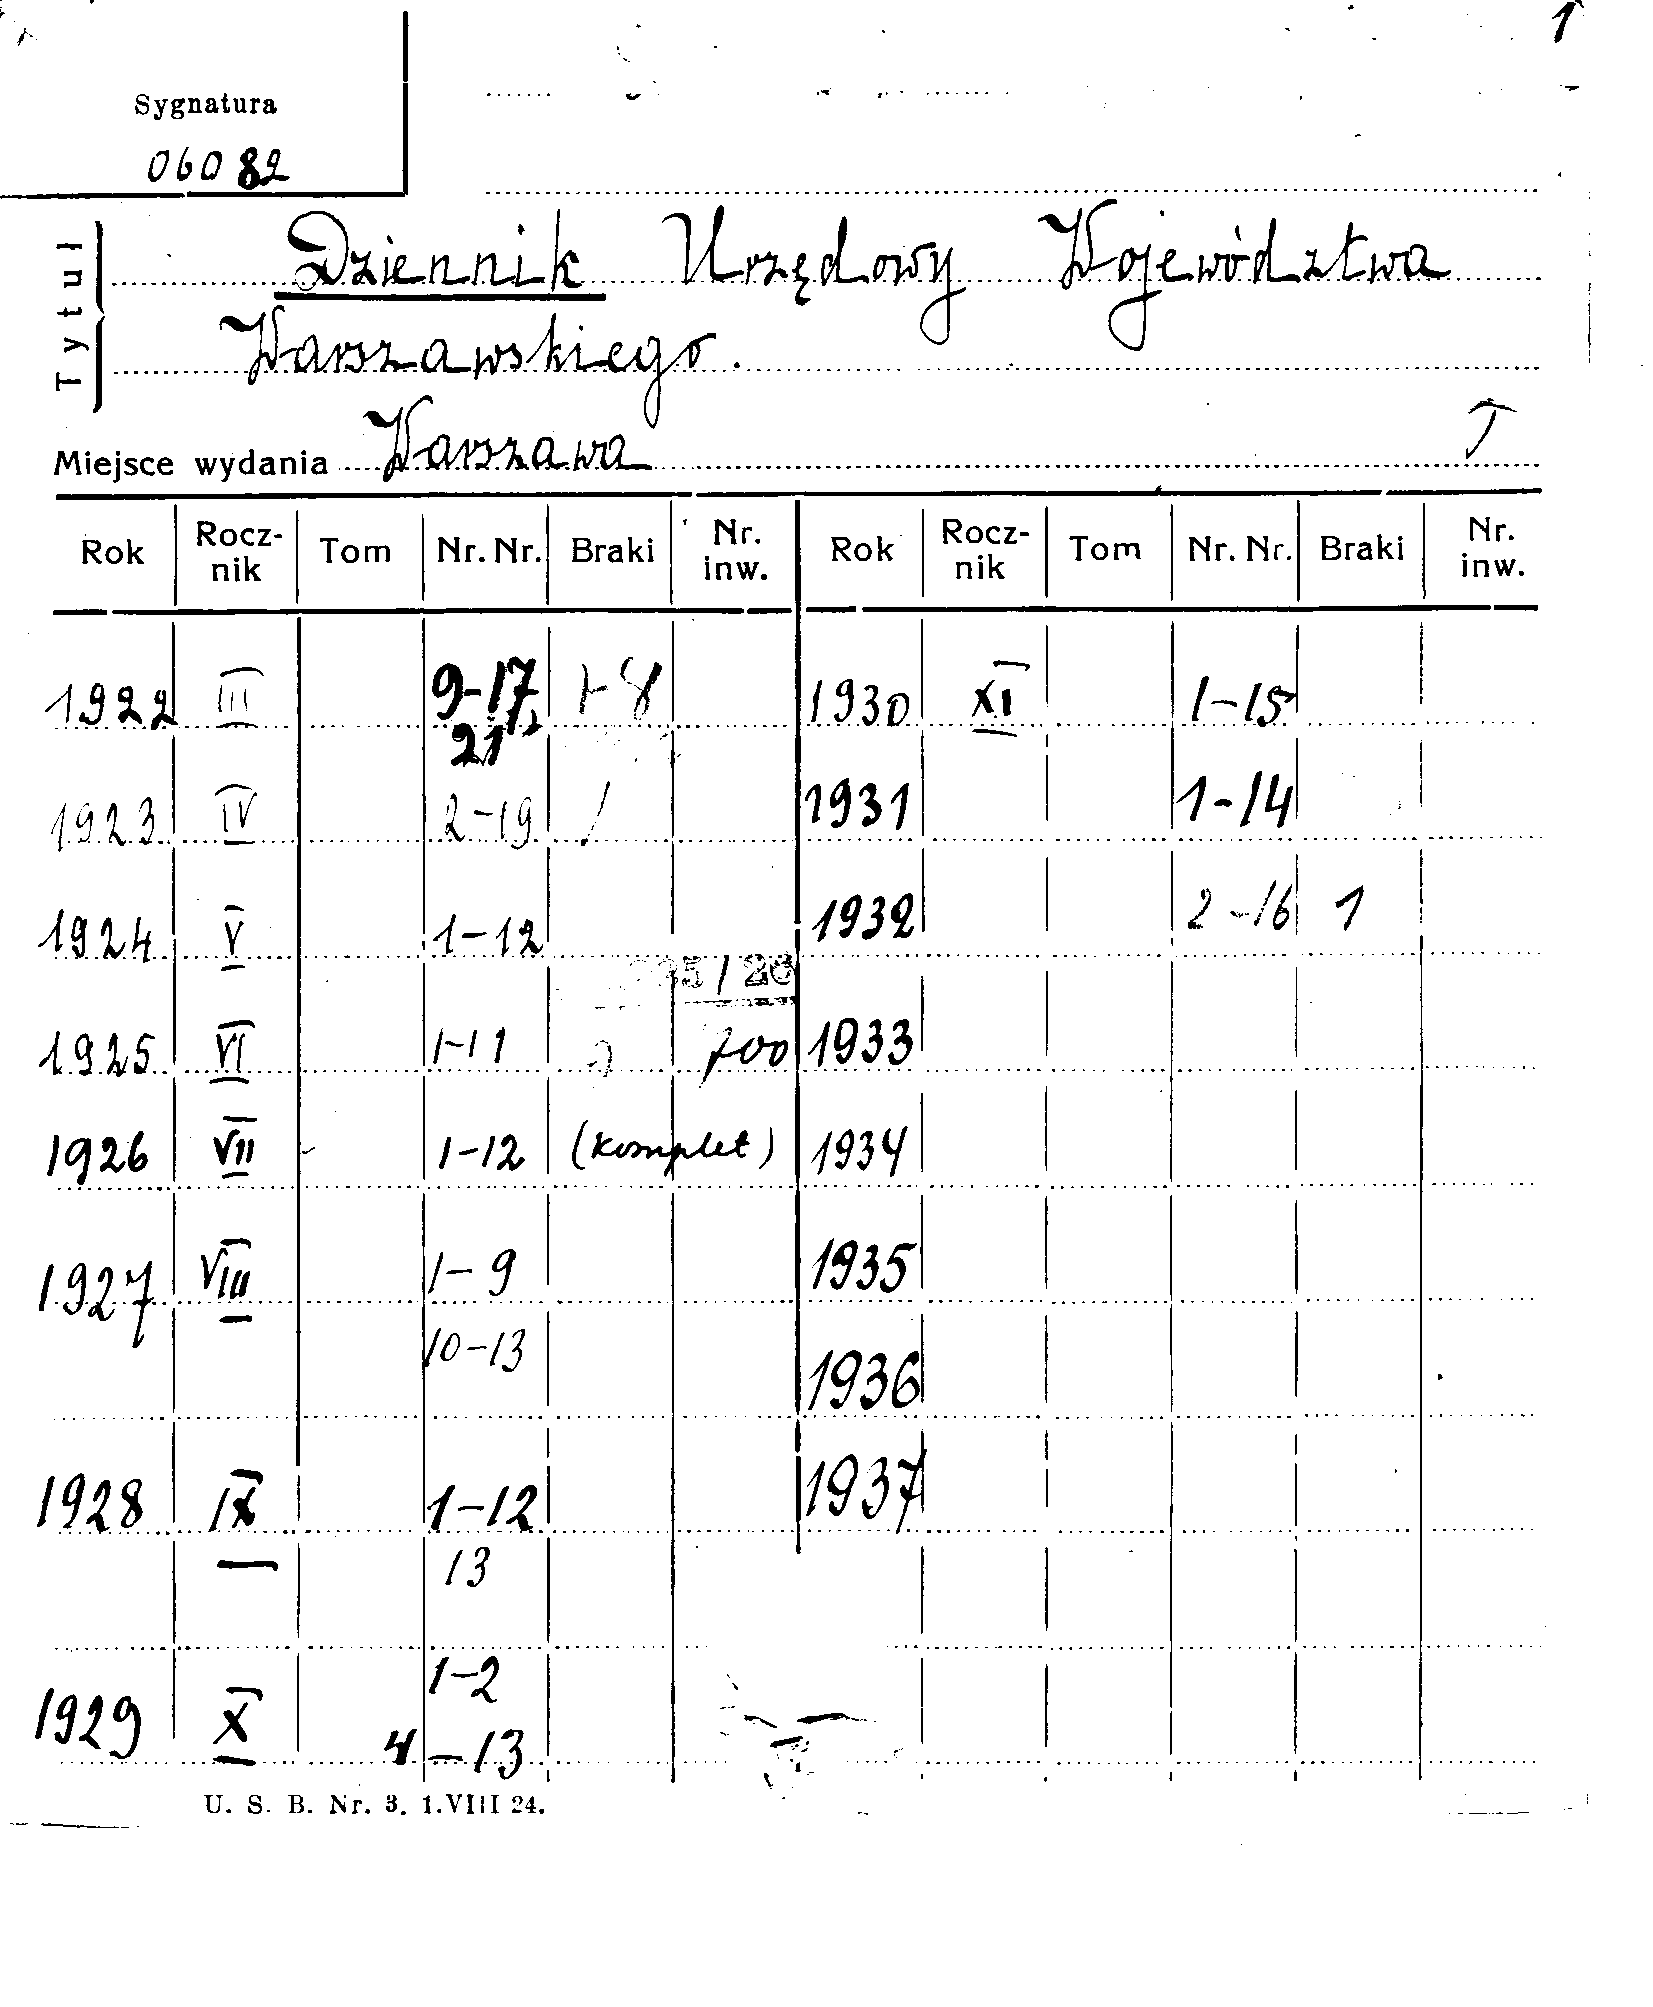 1
Sygnatura
06082
Tytuł
Dziennik Urzędowy Województwa
Warszawskiego.
Miejsce wydania Warszawa
Rok Rocz-nik Tom Nr. Nr. Braki Nr. inw. Rok Rocz-nik Tom Nr. Nr. Braki Nr. inw.
1922 III 9-17, 1-8 1930 XI 1-15
21
1923 IV 2-19 1 1931 1-14
1924 V 1-12 1932 2-16 1
35/26
1925 VI 1-11 700 1933
1926 VII 1-12 (komplet) 1934
1927 VIII 1-9 1935
10-13 1936
1928 IX 1-12 1937
13
1-2
1929 X 4-13
U. S. B. Nr. 3. 1.VIII 24.